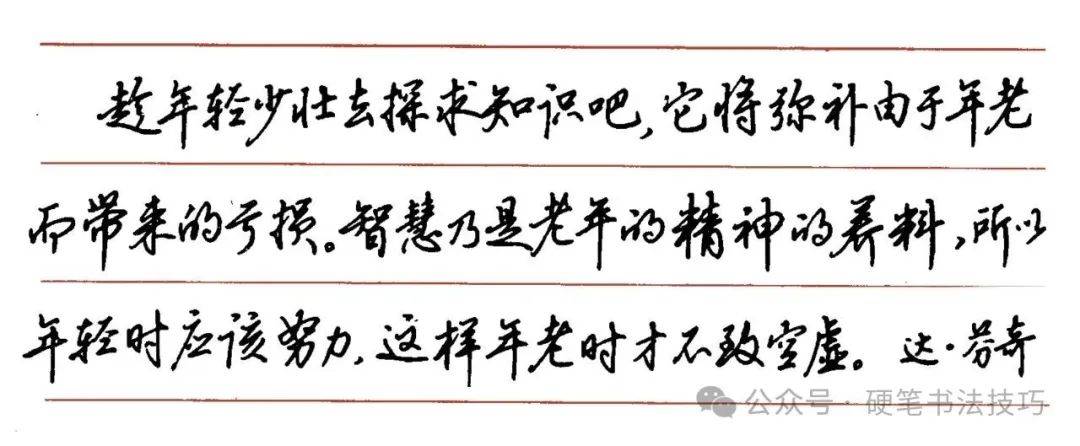 趁年轻少壮去探求知识吧,它将弥补由于年老
而带来的亏损。智慧乃是老年的精神的养料,所以
年轻时应该努力,这样年老时才不致空虚。 达·芬奇
公众号·硬笔书法技巧